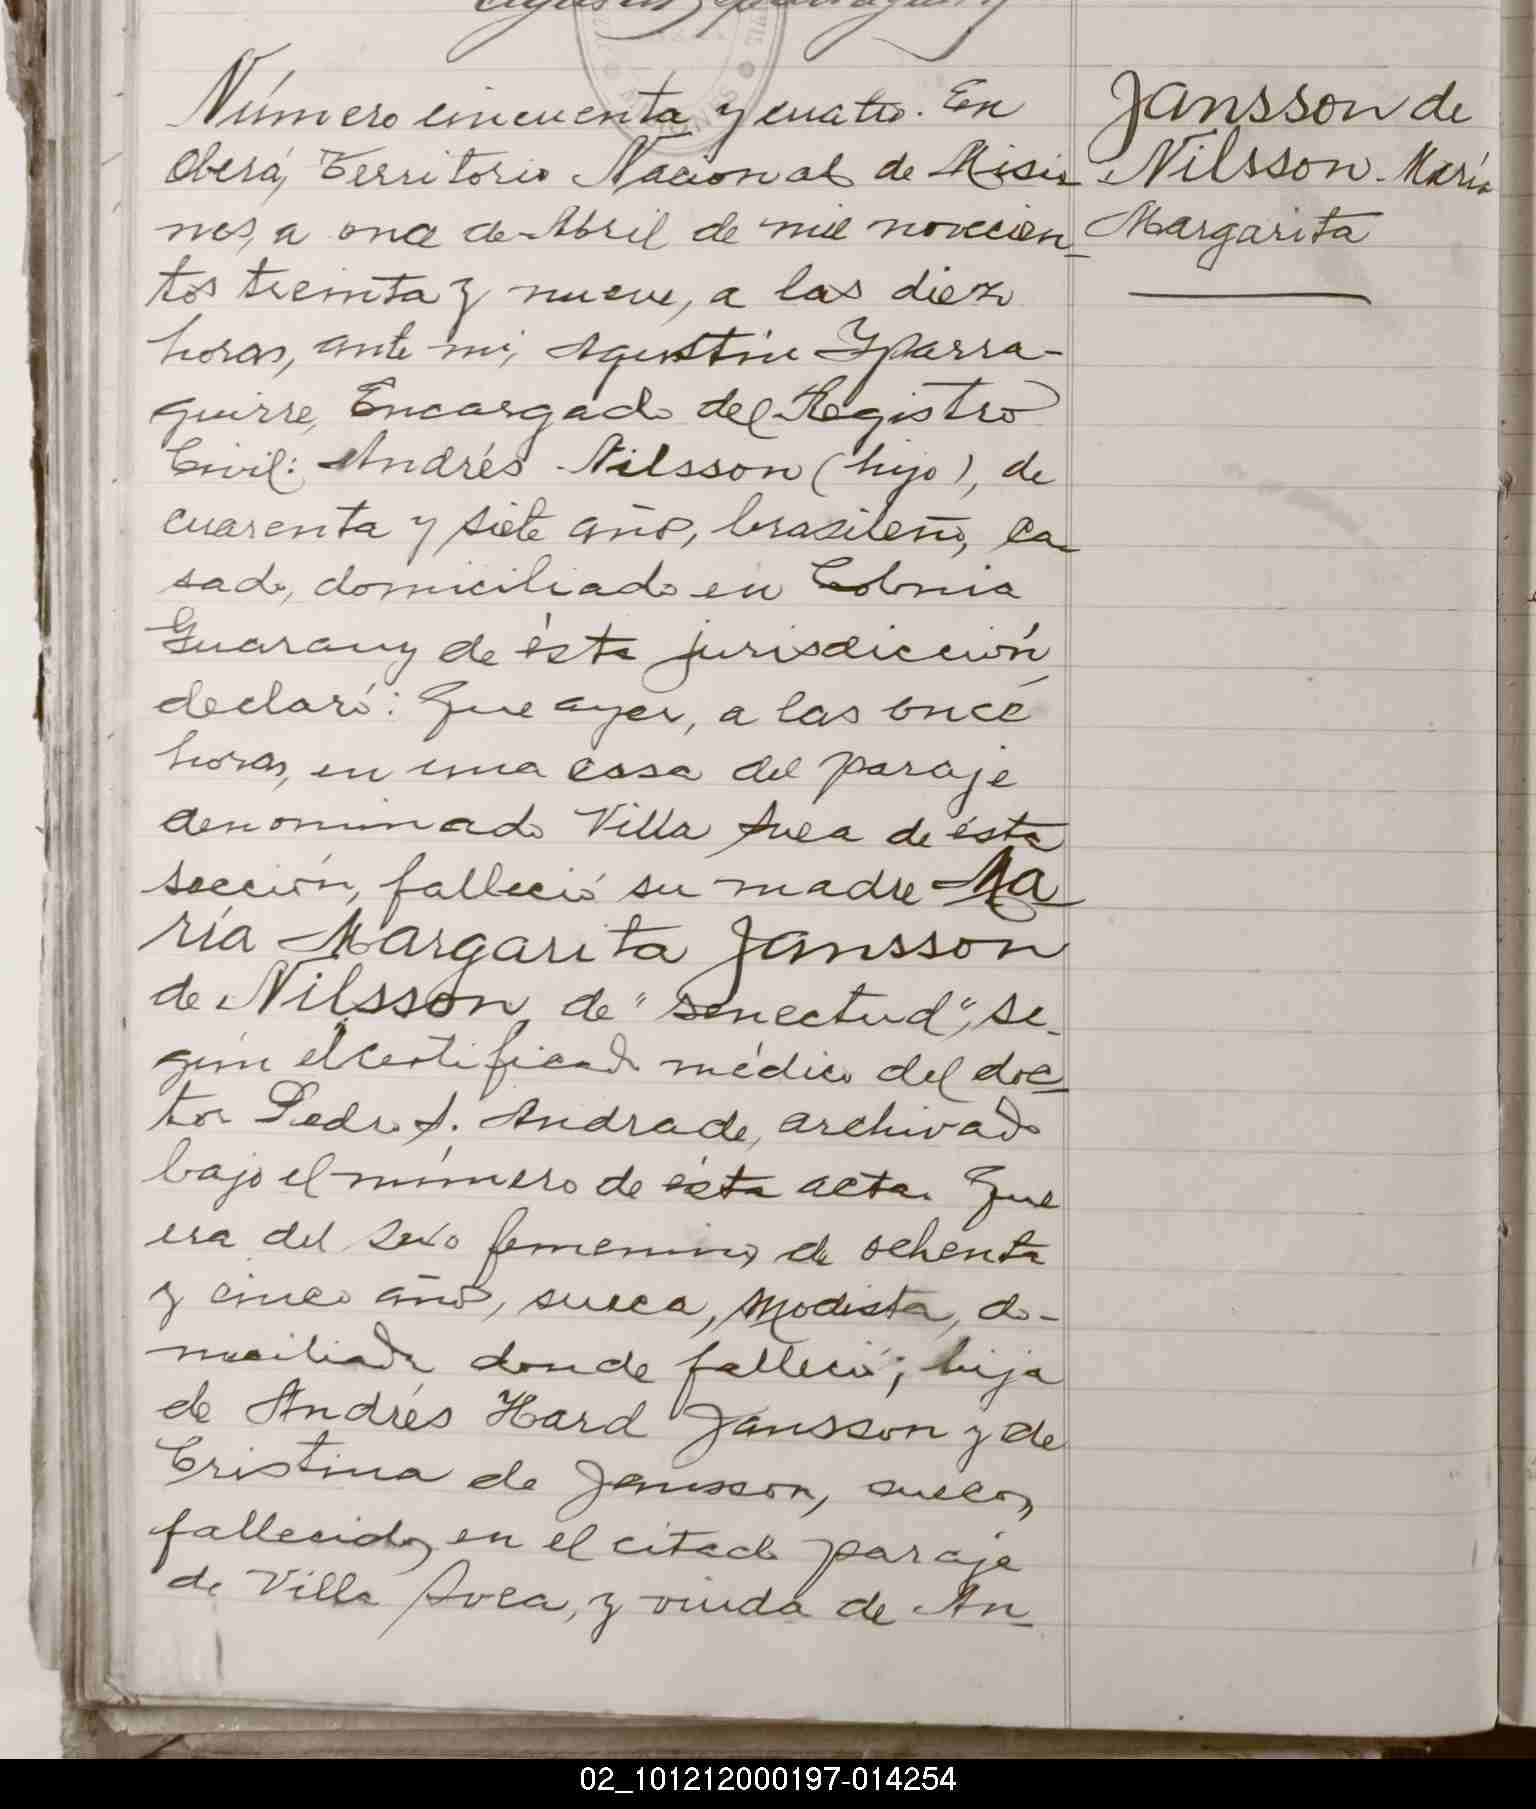 Número cincuenta y cuatro. En
Oberá, Territorio Nacional de Misio
nes, a once de Abril de mil novecien-
tos treinta y nueve, a las diez
horas, ante mi, Agustín Yparra-
guirre, Encargado del Registro
Civil: Andrés Nilsson (hijo), de
cuarenta y siete años, brasileño, ca-
sado, domiciliado en Colonia
Guarany de ésta jurisdicción,
declaró: Que ayer, a las once
horas, en una casa del paraje
denominado Villa Svea de ésta
sección, falleció su madre Ma-
ría Margarita Jansson
de Nilsson, de "senectud", se-
gún el certificado médico del doc-
tor Pedro A. Andrade, archivado
bajo el número de ésta acta. Que
era del sexo femenino, de ochenta
y cinco años, sueca, Modista, do-
miciliada donde falleció; hija
de Andrés Hard Jansson y de
Cristina de Jansson, suecos,
fallecidos en el citado paraje
de Villa Svea, y viuda de An-
Jansson de
Nilsson. María
Margarita
02_101212000197-014254